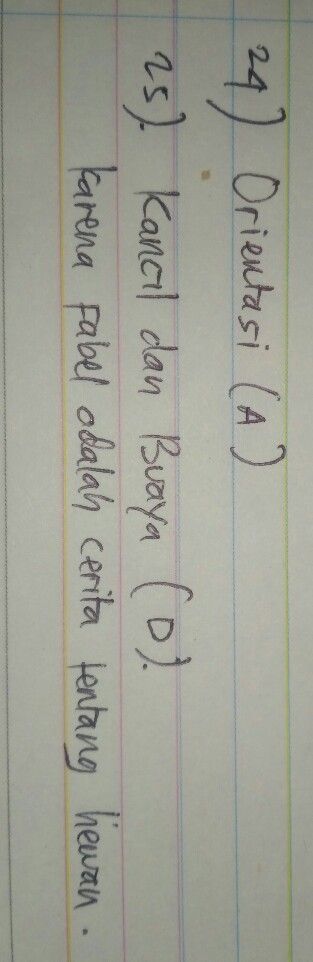 24) Orientasi (A)
25). Kancil dan Buaya (D).
karena Fabel adalah cerita tentang hewan.